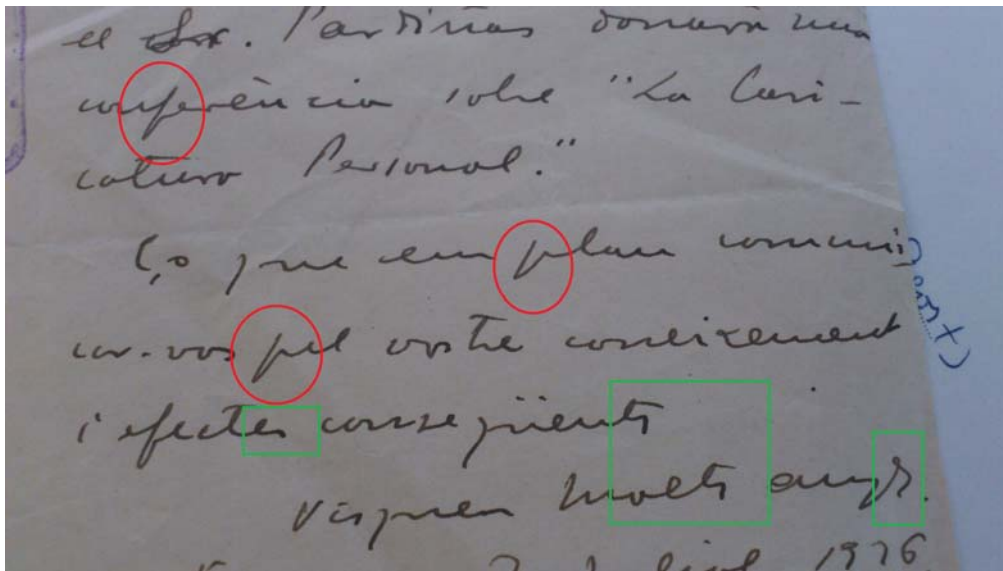 el Sr. Partiñas donarà una
conferència sobre "La Cari-
catura Personal."
Ço que em plau comuni
car-vos pel vostre coneixement
i efectes consegüents
Visqueu molts anys.
Juliol 1936